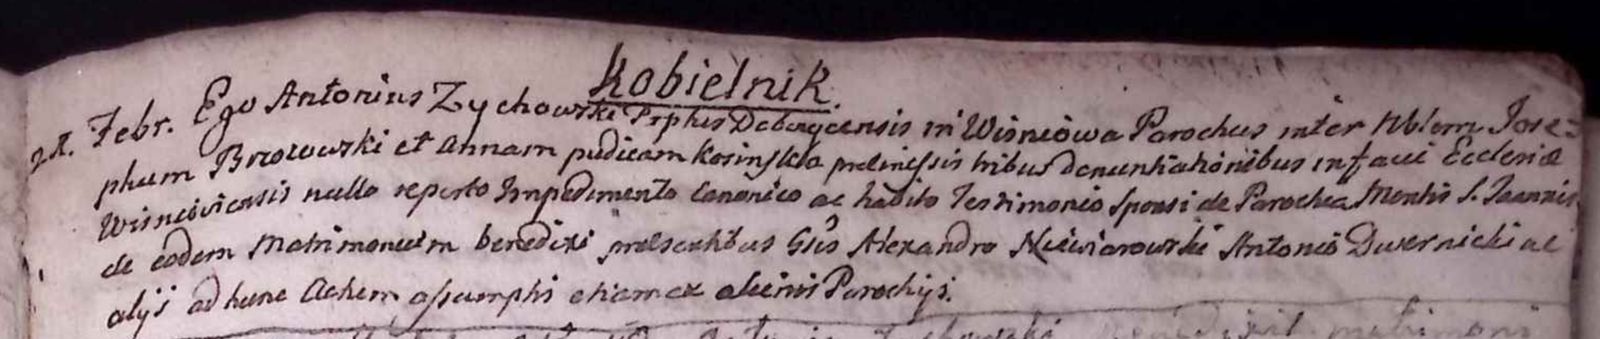 Kobielnik.
28. Febr. Ego Antonius Zychowski Prphus Dobczycensis in Wisniowa Parochus inter Nblem Jose=
phum Brzozowski et Annam pudicam Kosinska prolinissis tribus denuntiationibus in facie Ecclesiæ
Wisnioviensis nullo reperto Impedimento Canonico ac habito Testimonio Sponsi de Parochia Montis S. Joannis
de eodem Matrimonium benedixi praesentibus Gsis Alexandro Niewiarowski Antonio Dwernicki ac
alijs ad hunc Actum assumptis etiam ex alienis Parochijs.
Antonius Zychowski benedixit matrimoni